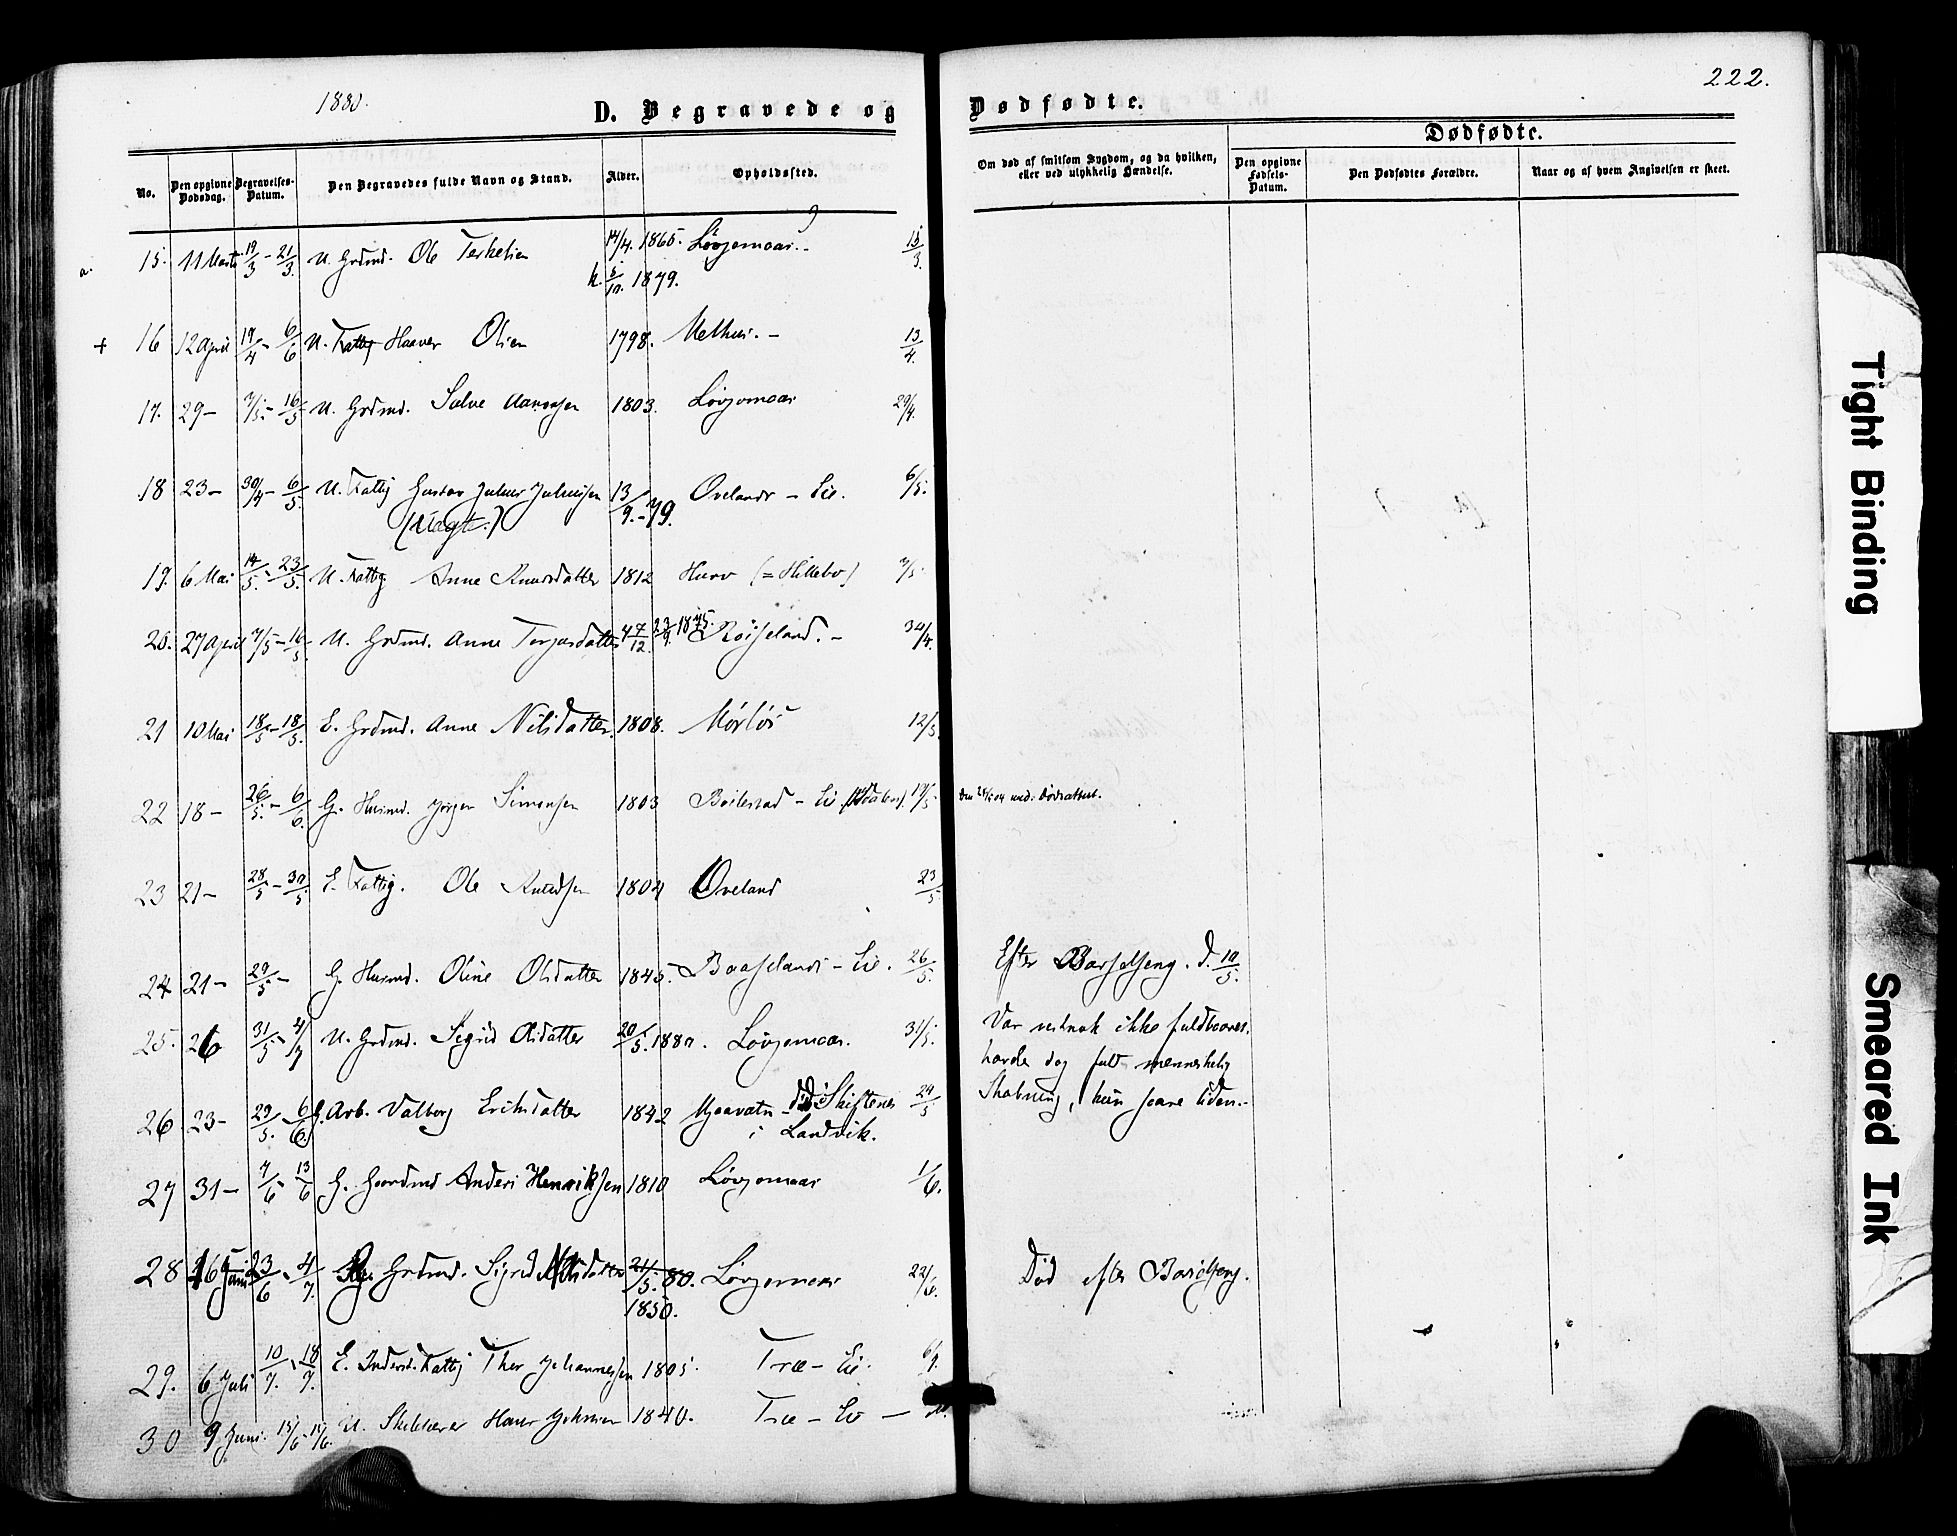 1880.
222.
D. Begravede og Dødfødte.
Dødfødte.
No.
Den opgivne Dødsdag.
Begravelses-Datum.
Den Begravedes fulde Navn og Stand.
Alder.
Opholdssted.
Om død af smitsom Sygdom, og da hvilken, eller ved ulykkelig Hændelse.
Den opgivne Fødsels-Datum.
Den Dødfødtes Forældre.
Naar og af hvem Angivelsen er skeet.
15. 11 Marts 19/3 - 21/3. U. Grdmd. Ole Terkelsen 14/4. 1865. Løvjomaas.
1879.
+ 16 12 April 19/4 - 6/6 U. Fattig Haaver Olsen 1798. 13/4.
17. 29 - 7/5. - 16/5 U. Grdmd. Salve Aanonsen 1803. Løvjomaas 29/4.
18 23 - 30/4 - 6/5. U. Fattig Gustav Julius Juliussen 13/9. - 79. Ovelands - Eie. 6/5.
19. 6 Mai 14/5. - 23/5. U. Fattig Anne Knudsdatter 1812 (= Hillebo)
20. 27 April 7/5 - 16/5. U. Grdmd. Anne Terjesdatter 4 7/12. Røiseland. -
21 10 Mai 18/5 - 18/5. E. Grdmd. Anne Nilsdatter. 1808. Mørfør 12/5
22 18 - 26/5. - 6/6. G. Husmd. Jørgen Simonsen 1803 Bøilestad - Eie
23 21 - 28/5 - 30/5 E. Fattig. Ole Knudsen 1804 Oveland 23/5
24 21 - 29/5 - G. Husmd. Oline Olsdatter 1845. Baaselands - Eie. 26/5. Efter Barselseng. D. 10/5.
25. 26 31/5 - 4/7 U. Grdmd. Sigrid Olsdatter 20/5. 1880. Løvjomaas. 31/5. Var ikke fuldbaaret.
havde dog fuld menneskelig
Skabning, kun liden.-
26 23 - 29/5. - 6/6. G. Arb. Valborg Eriksdatter 1842 Mjaavatn - død i Skiftenes 24/5
i Landvik.
27 31 - 7/6 - 13/6 G. Gaardmd Anders Henriksen 1810 Løvjomaas 1/6.
28 16 Juni 23/6 - 4/7. Grdmd. Sigrid Nilsdatter 21/5. 80. Løvjomaas 22/6. Død efter Barselseng.
1850.
29. 6 Juli 10/7. - 18/7. E. Inderst. Fattig Thor Johannesen 1805. Træ - Eie.
30 9 Juni. U. Hans Johnsen 1840. Træ - Ei -
Tight Binding
Smeared Ink